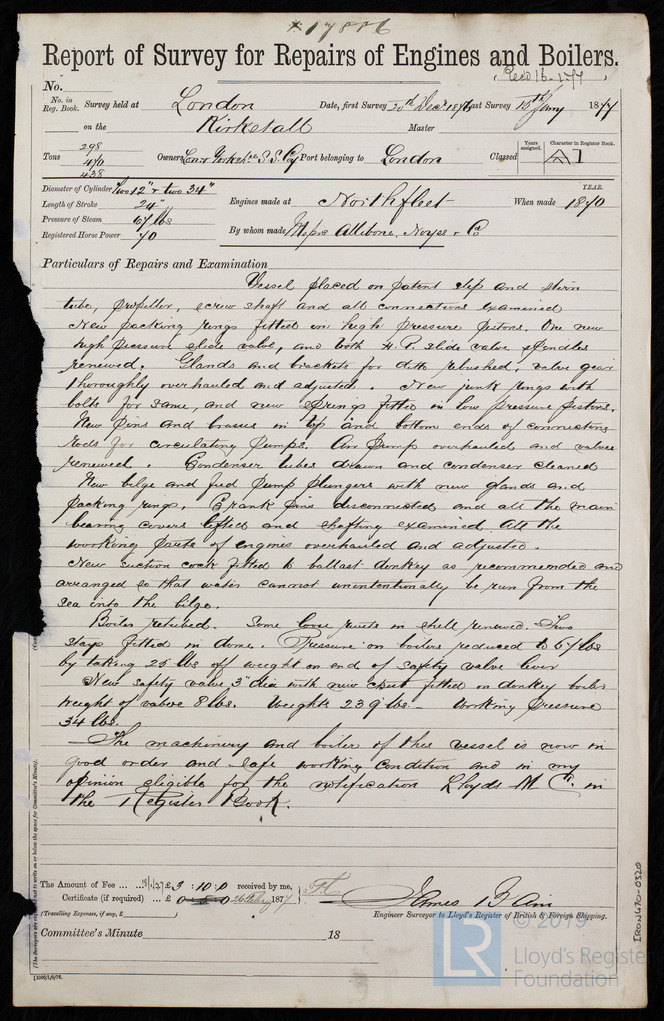 * 17886
Report of Survey for Repairs of Engines and Boilers.
Recd 16-1-77
No.
No. in Reg. Book. Survey held at London Date, first Survey 20th Decr 1876 Last Survey 15th Jany 1877
on the Kirkstall Master
Tons 298 470 438 Owners Lon & Yorkshire S.S. Coy Port belonging to London Classed Years assigned. Character in Register Book. A 1
Diameter of Cylinder Two 12" & two 34"
Length of Stroke 24"
Pressure of Steam 67 lbs
Registered Horse Power 70
Engines made at Northfleet When made YEAR. 1870
By whom made Messrs Allibone, Noyes & Co
Particulars of Repairs and Examination
Vessel placed on patent slip and stern
tube, propeller, screw shaft and all connections examined
New packing rings fitted in high pressure pistons. One new
high pressure slide valve, and both H.P. slide valve spindles
renewed. Glands and brackets for ditto rebushed, valve gear
thoroughly overhauled and adjusted. New junk rings with
bolts for same, and new springs fitted in low pressure pistons.
New pins and brasses in top and bottom ends of connecting
rods for circulating pumps. Air pump overhauled and valves
renewed. Condenser tubes drawn and condenser cleaned
New bilge and feed pump plungers with new glands and
packing rings. Crank pins disconnected and all the main
bearing covers lifted and shafting examined. All the
working parts of engines overhauled and adjusted.
New suction cock fitted to ballast donkey as recommended and
arranged so that water cannot unintentionally be run from the
sea into the bilge.
Boiler retubed. Some loose rivets in shell renewed. Two
stays fitted in dome. Pressure on boilers reduced to 67 lbs
by taking 25 lbs off weight on end of safety valve lever
New safety valve 3" dia with new chest fitted on donkey boiler
weight of valve 8 lbs. Weights 239 lbs - Working pressure
34 lbs.
The machinery and boiler of this vessel is now in
good order and safe working condition and in my
opinion eligible for the notification Lloyds M.C. in
the Register Book.
The Amount of Fee ... £ 3 : 10 : 0 received by me,
Certificate (if required) ... £ 0 187
(Travelling Expenses, if any, £ )
James B Ain
Engineer Surveyor to Lloyd's Register of British & Foreign Shipping.
Committee's Minute 18
IRON470-0320
© 2019
LR Lloyd's Register Foundation